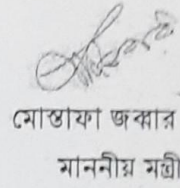 মোস্তাফা জব্বার
মাননীয় মন্ত্রী